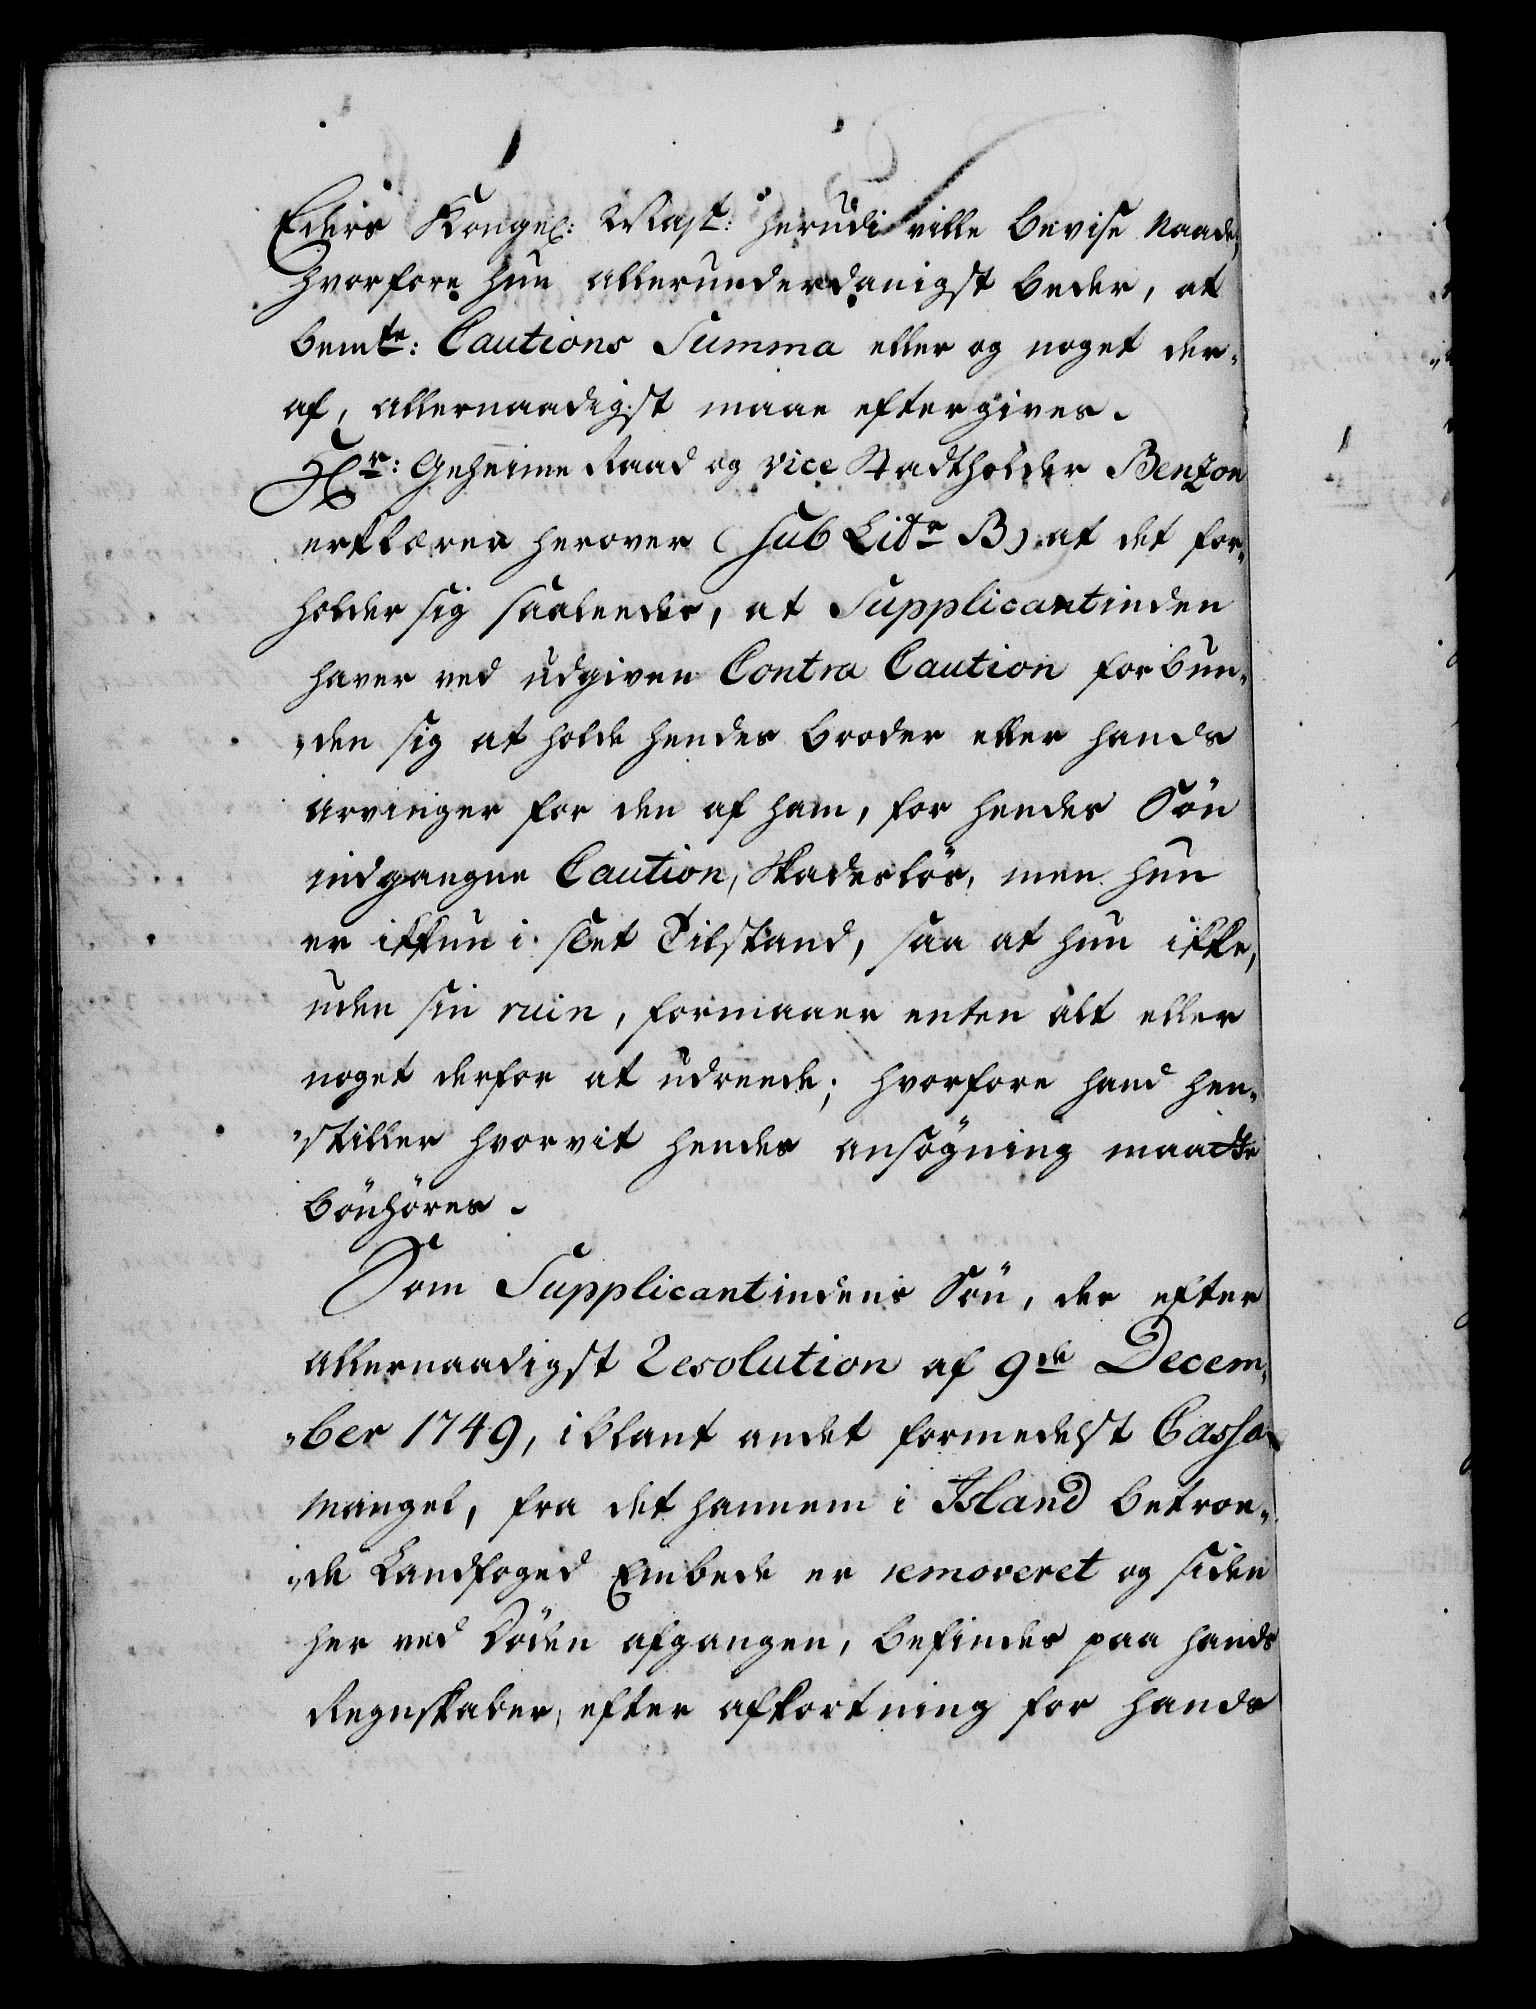 Eders Kongel: Mast: herudi ville bevise Naade,
hvorfore hun allerunderdanigst beder, at
bemte: Cautions Summa eller og noget der-
af, allernaadigst maae eftergives.
Hr: Geheime Raad og vice Stadtholder Benzon
erklærer herover (sub Litr B) at det for-
holder sig saaleedes, at Supplicantinden
haver ved udgiven Contra Caution forbun-
den sig at holde hendes broder eller hands
arvinger for den af ham, for hendes Sön
indgangne Caution, skadeslös, men hun
er ikkun i slet Tilstand, saa at hun ikke,
uden sin ruin, formaaer enten alt eller
noget derfor at udreede; hvorfore hand hen-
stiller hvorvit hendes ansögning maatte
bönhöres.
Som Supplicantindens Sön, der efter
allernaadigst Resolution af 9de Decem-
ber 1749, iblant andet formedelst Cassa
mangel, fra det hannem i Island betroe-
de Landfoged Embede er removeret og siden
her ved Döden afgangen, befindes paa hands
Regnskaber, efter afkortning for hands